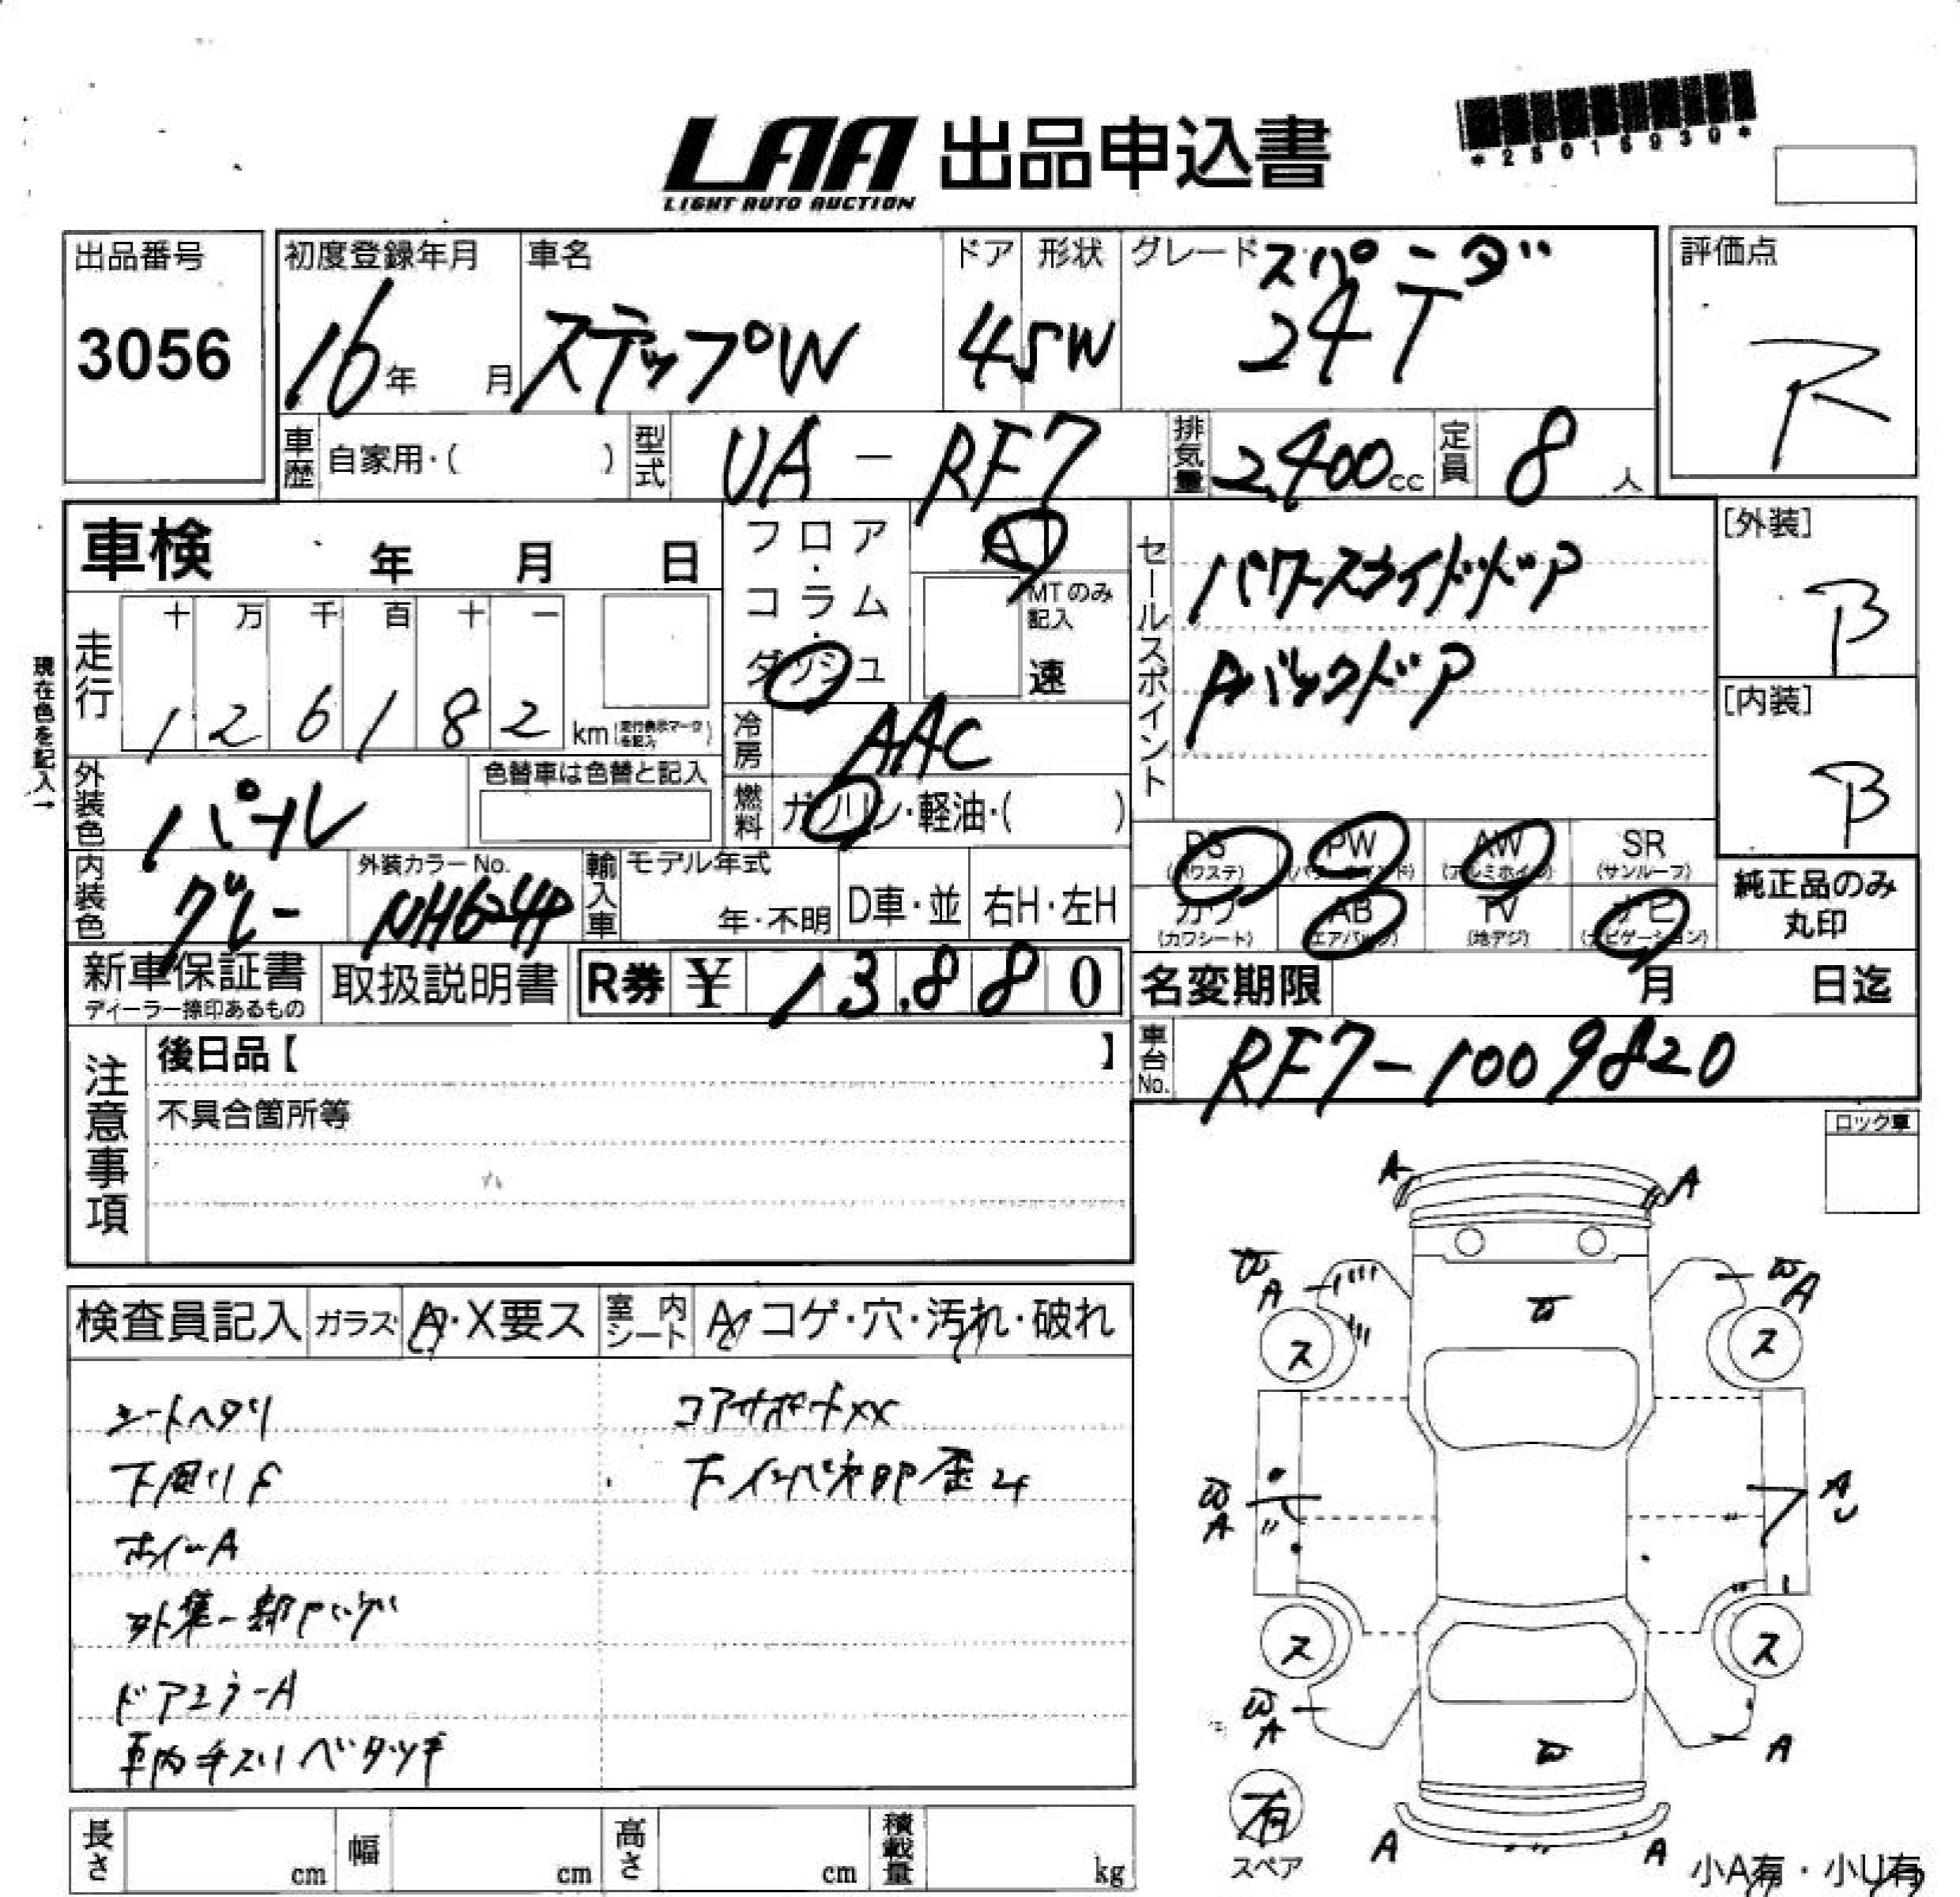 LAA 出品申込書
LIGHT AUTO AUCTION
出品番号
3056
初度登録年月
16年 月
車名
ステップW
ドア
4
形状
SW
グレード
スパーダ
24T
評価点
R
車歴
自家用・( )
型式
UA - RF7
排気量
2,400cc
定員
8人
車検 年 月 日
フロア・コラム・ダッシュ
AT
MTのみ記入
速
走行
十 万 千 百 十 一
1 2 6 1 8 2 km
現在色を記入→
冷房
AAC
燃料
ガソリン・軽油・( )
外装色
パール
色替車は色替と記入
内装色
グレー
外装カラーNo.
NH624P
輸入車
モデル年式
年・不明
D車・並
右H・左H
セールスポイント
パワースライドドア
[外装]
B
[内装]
B
PS
(パワステ)
PW
AW
(アルミホイル)
SR
(サンルーフ)
カワ
(カワシート)
AB
(エアバッグ)
TV
(地デジ)
ナビ
(ナビゲーション)
純正品のみ
丸印
新車保証書
ディーラー捺印あるもの
取扱説明書
R券 ¥ 13,880
名変期限 月 日迄
車台No.
RF7-1009820
注意事項
後日品【 】
不具合箇所等
ロック車
検査員記入
ガラス
A・X要ス
室内シート
A コゲ・穴・汚れ・破れ
シートヘタリ
コアサポートXX
下廻りF
ホイールA
ドアミラーA
車内キズ ベタツキ
A
A
W
A
W
A
ス
ス
W
W
A
A
U
ス
ス
W
A
W
A
有
スペア
A
A
小A有・小U有
長さ cm
幅 cm
高さ cm
積載量 kg